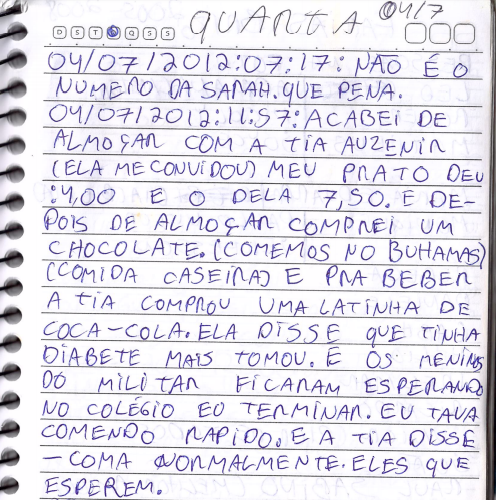 QUARTA 04/7
D S T Q Q S S
04/07/2012:07:17: NÃO É O
NUMERO DA SARAH. QUE PENA.
04/07/2012:11:57: ACABEI DE
ALMOÇAR COM A TIA AUZENIR
(ELA ME CONVIDOU) MEU PRATO DEU
:4,00 E O DELA 7,50. E DE-
POIS DE ALMOÇAR COMPREI UM
CHOCOLATE. (COMEMOS NO BUHAMAS)
(COMIDA CASEIRA) E PRA BEBER
A TIA COMPROU UMA LATINHA DE
COCA-COLA. ELA DISSE QUE TINHA
DIABETE MAIS TOMOU. E OS MENINS
DO MILITAR FICARAM ESPERANDO
NO COLÉGIO EU TERMINAR. EU TAVA
COMENDO RAPIDO. E A TIA DISSE
- COMA NORMALMENTE. ELES QUE
ESPEREM.